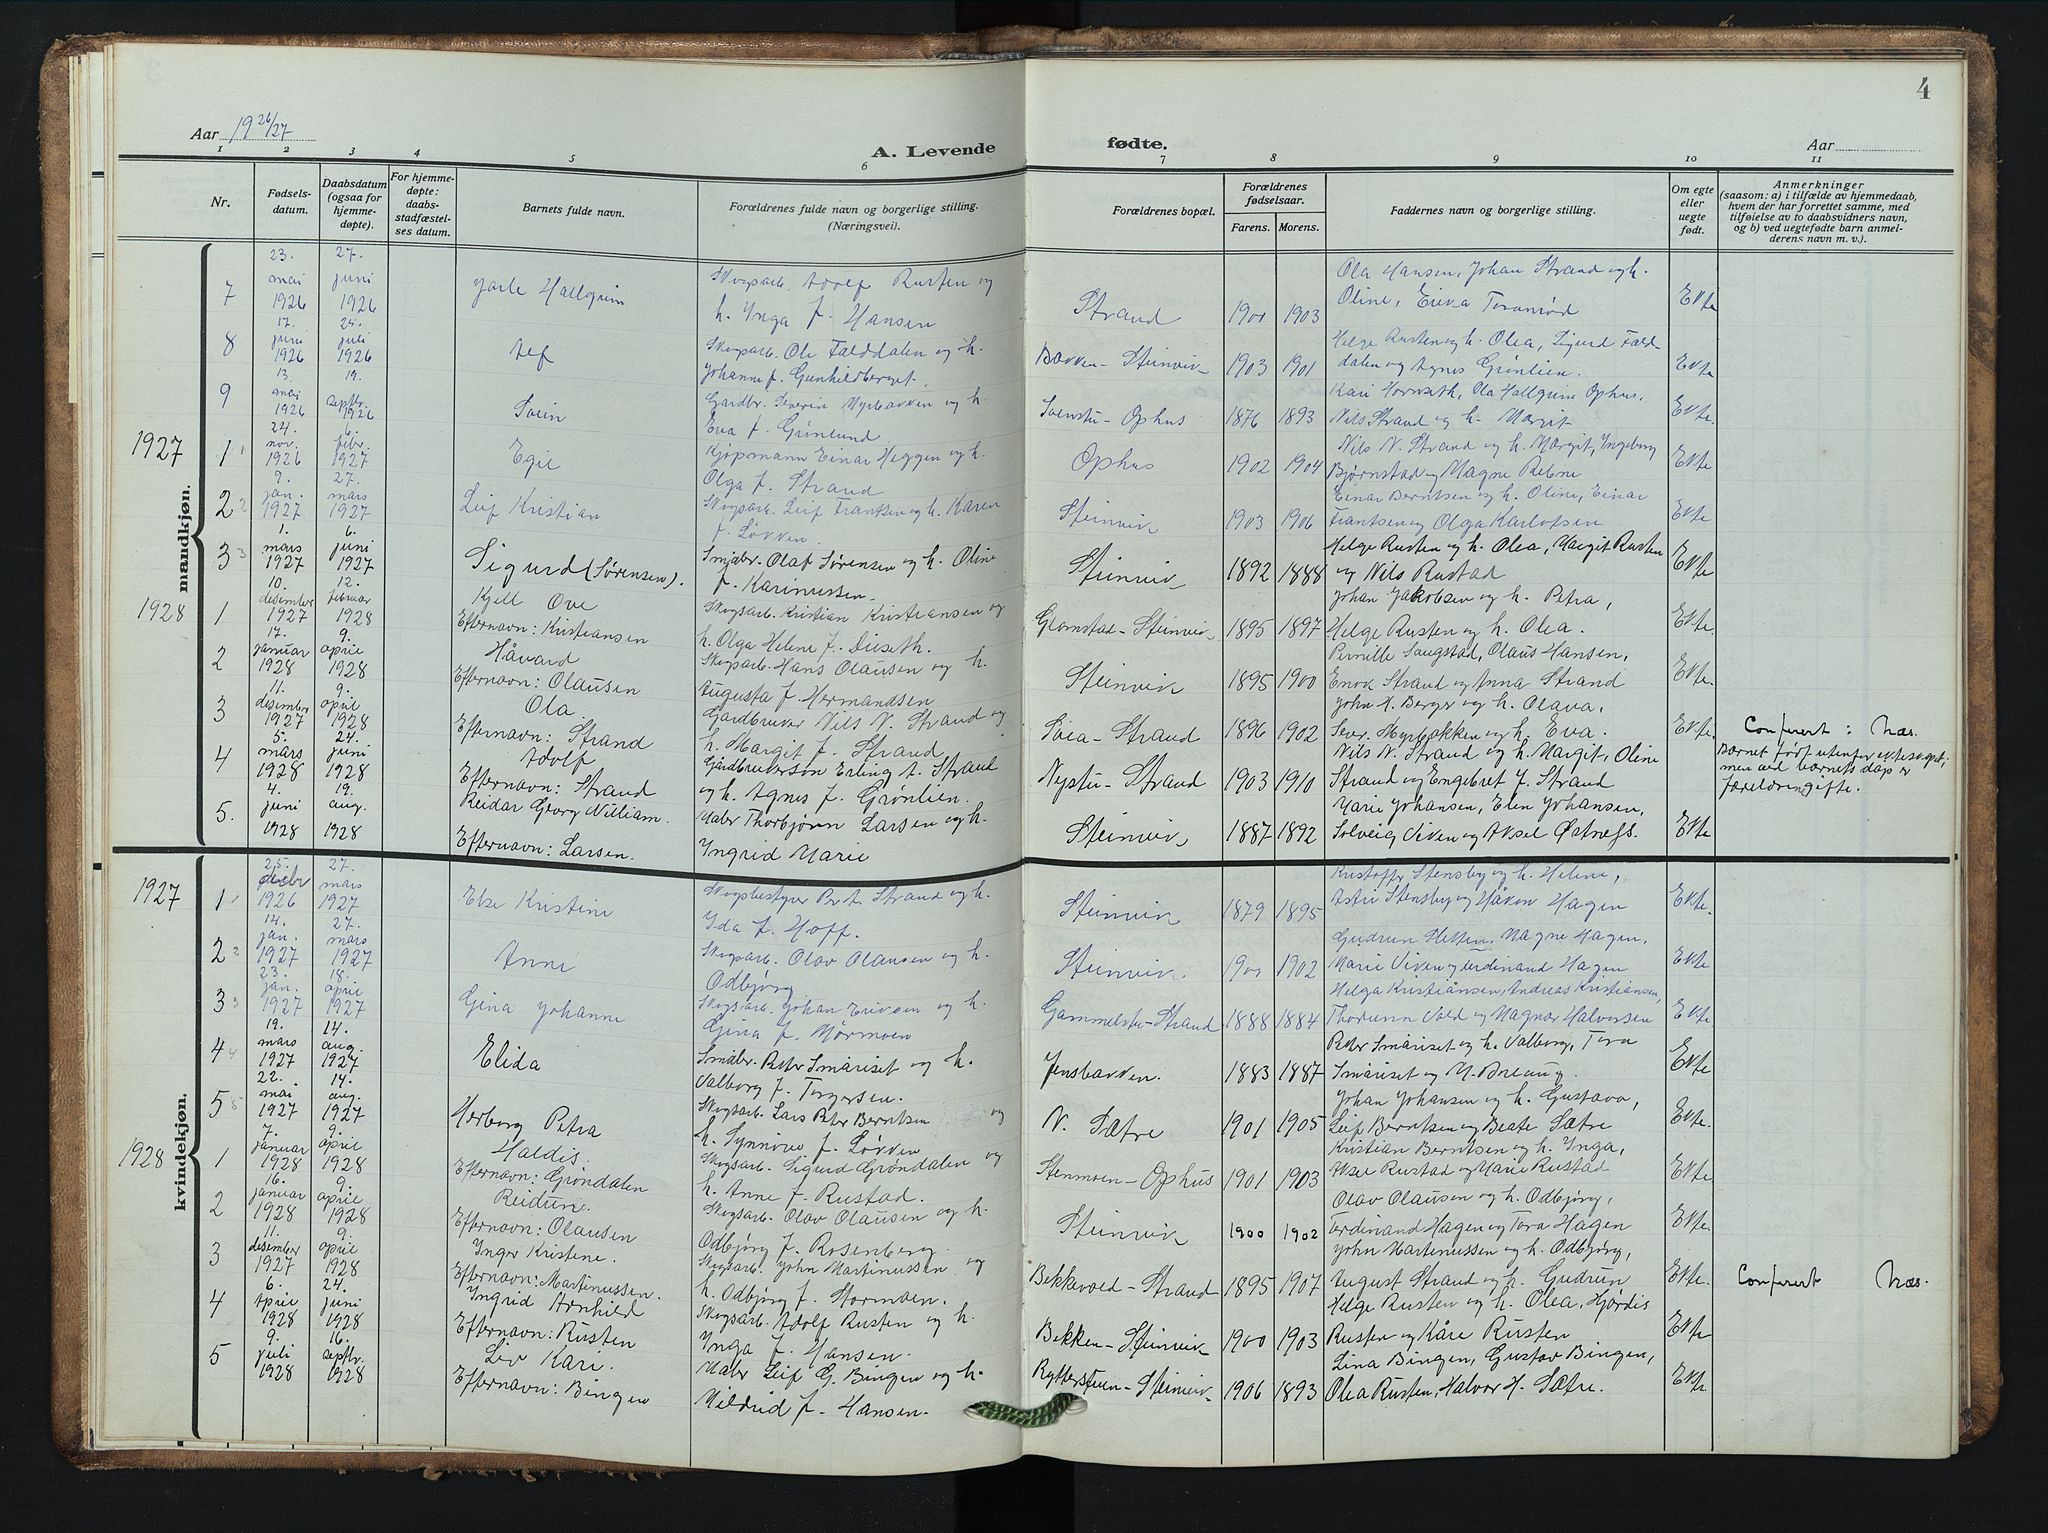 4
Aar 19 26/27
A. Levende
fødte.
Aar
1 2 3 4 5 6 7 8 9 10 11
Nr.
Fødsels-
datum.
Daabsdatum
(ogsaa for
hjemme-
døpte).
For hjemme-
døpte:
daabs-
stadfæstel-
ses datum.
Barnets fulde navn.
Forældrenes fulde navn og borgerlige stilling.
(Næringsvei).
Forældrenes bopæl.
Forældrenes
fødselsaar.
Farens. Morens.
Faddernes navn og borgerlige stilling.
Om egte
eller
uegte
født.
Anmerkninger
(saasom: a) i tilfælde av hjemmedaab,
hvem der har forrettet samme, med
tilføielse av to daabsvidners navn,
og b) ved uegtefødte barn anmel-
derens navn m. v.).
mandkjøn.
7 23. mai 1926 27. juni 1926 Jarle Hallgrim Skogsarb. Adolf Rusten og
h. Inga f. Hansen Strand 1900 1903 Ola Hansen, Johan Strand og h.
Oline, Erika Toramod Ekte
8 17. juni 1926 25. juli 1926 Alf Skogsarb. Ole Falddalen og h.
Johanne f. Gunhildberget. Bakken - Steinvik 1903 1901 Helge Rusten og h. Olea, Sigurd Fald-
dalen og Agnes Grønlien. Ekte
9 13. mai 1926 19. septbr. 1926 Svein Gardbr. Severin Myrbakken og h.
Eva f. Grønlund Svenstu - Ophus 1876 1893 Kari Hornseth, Ola Hallgrim Ophus,
Nils Strand og h. Margit Ekte.
1927
1 24. nov. 1926 6. febr. 1927 Egil Kjøpmann Einar Heggen og h.
Olga f. Strand Ophus 1902 1904 Nils N. Strand og h. Margit, Ingeborg
Bjørnstad og Magne Rebne Ekte
2 9. jan. 1927 27. mars 1927 Leif Kristian Skogsarb. Leif Frantsen og h. Karen
f. Løkken. Steinvik 1903 1906 Einar Berntsen og h. Oline, Einar
Frantsen og Olga Karlotsen Ekte
3 1. mars 1927 6. juni 1927 Sigurd (Sørensen). Småbr. Olaf Sørensen og h. Oline
f. Karinussen. Steinvik 1892 1888 Helge Rusten og h. Olea, Margit Rusten
og Nils Rustad Ekte
1928
1 10. desember 1927 12. februar 1928 Kjell Ove
Efternavn: Kristiansen Skogsarb. Kristian Kristiansen og
h. Olga Helene f. Diseth. Glomstad - Steinvik 1895 1897 Johan Jakobsen og h. Petra,
Helge Rusten og h. Olea. Ekte.
2 17. januar 1928 9. april 1928 Håvard
Efternavn: Olausen Skogsarb. Hans Olausen og h.
Augusta f. Hermandsen Steinvik 1895 1900 Pernille Saugstad, Olaus Hansen,
Enok Strand og Anna Strand Ekte.
3 11. desember 1927 9. april 1928 Ola
Efternavn: Strand Gårdbruker Nils N. Strand og
h. Margit f. Strand Svea - Strand 1896 1902 John A. Berger og h. Olava,
Sever. Myrbakken og h. Eva. Ekte. Conferert: Næs.
4 5. mars 1928 24. juni 1928 Adolf
Efternavn: Strand Gårdbrukersøn Erling A. Strand
og h. Agnes f. Grønlien. Nystu - Strand 1903 1910 Nils N. Strand og h. Margit, Oline
Strand og Engebret J. Strand Ekte Barnet født utenfor ekteskapet,
men ved barnets dåp er
foreldrene gifte.
5. 4. juni 1928 19. aug. 1928 Reidar Georg William.
Efternavn: Larsen. Maler Thorbjørn Larsen og h.
Ingrid Marie Steinvik 1887 1892 Marie Johansen, Elen Johansen,
Solveig Viken og Aksel Østness. Ekte
kvindekjøn.
1927
1 25. decbr 1926 27. mars 1927 Else Kristine Skogbestyrer Per A. Strand og h.
Ida f. Hoff. Steinvik 1879 1895 Kristoffer Stensby og h. Helene,
Astri Stensby og Håken Hagen Ekte.
2 14. jan. 1927 27. mars 1927 Anne Skogsarb. Olav Olausen og h.
Odbjørg Steinvik 1900 1902 Gudrun Hetten, Magne Hagen,
Marie Viken og Ferdinand Hagen Ekte
3 23. jan. 1927 18. april 1927 Gina Johanne Skogsarb. Johan Eriksen og h.
Gina f. Mørmoen Gammelstu - Strand 1888 1884 Helga Kristiansen, Andreas Kristiansen,
Thorunn Vold og Magnar Halvorsen Ekte
4 19. mars 1927 14. aug. 1927 Elida Småbr. Peter Småriset og h.
Valborg f. Torgersen. Jensbakken. 1883 1887 Peter Småriset og h. Valborg, Tora
Småriset og M. Breaug. Ekte
5 22. mai 1927 14. aug. 1927 Herborg Petra Skogsarb. Lars Peter Berntsen og
h. Synnøve f. Løkken N. Sætre 1901 1905 Johan Johansen og h. Gustava,
Leif Berntsen og Beate Sætre Ekte.
1928
1 7. januar 1928 9. april 1928 Haldis.
Efternavn: Grøndalen Skogsarb. Sigurd Grøndalen og
h. Anne f. Rustad. Stenmoen - Ophus 1901 1903 Kristian Berntsen og h. Inga,
Aksel Rustad og Marie Rustad Ekte
2 16. januar 1928 9. april 1928 Reidun.
Efternavn: Olausen Skogsarb. Olav Olausen og h.
Odbjørg f. Rosenberg. Steinvik 1900 1902 Olav Olausen og h. Odbjørg,
Ferdinand Hagen og Tora Hagen Ekte.
3 11. desember 1927 9. april 1928 Inger Kristine.
Efternavn: Martinussen. Skogsarb. John Martinussen og
h. Odbjørg f. Stormoen. Bekkevold - Strand 1895 1907 John Martenussen og h. Odbjørg,
August Strand og h. Gudrun Ekte. Conferert Næs.
4 6. april 1928 24. juni 1928 Ingrid Arnhild
Efternavn: Rusten Skogsarb. Adolf Rusten og h.
Inga f. Hansen. Bekken - Steinvik 1900 1903 Helge Rusten og h. Olea, Hjørdis
Rusten og Kåre Rusten Ekte
5 9. juli 1928 16. septbr. 1928 Liv Kari.
Efternavn: Bingen Maler Leif G. Bingen og h.
Mildrid f. Hansen. Rytterstuen - Steinvik 1906 1893 Lina Bingen, Gustav Bingen,
Olea Rusten, Halvor H. Sætre. Ekte.